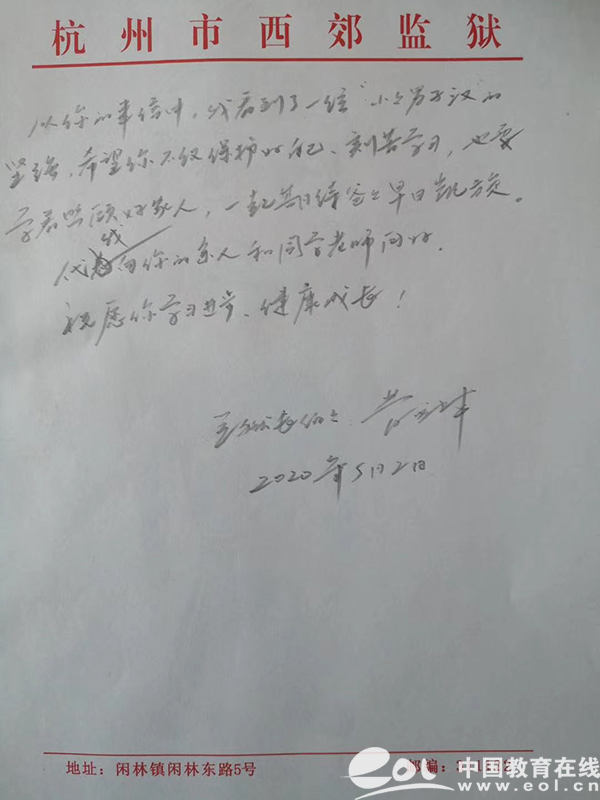 杭州市西郊监狱
从你的来信中，我看到了一位"小小男子汉的
坚强，希望你不仅保护好自己、刻苦学习，也要
学着照顾好家人，一起期待爸爸早日凯旋。
代我向你的家人和同学老师问好.
祝愿你学习进步、健康成长！
监狱长伯伯：
2020年5月2日
地址：闲林镇闲林东路5号
邮编：3
eol 中国教育在线
www.eol.cn